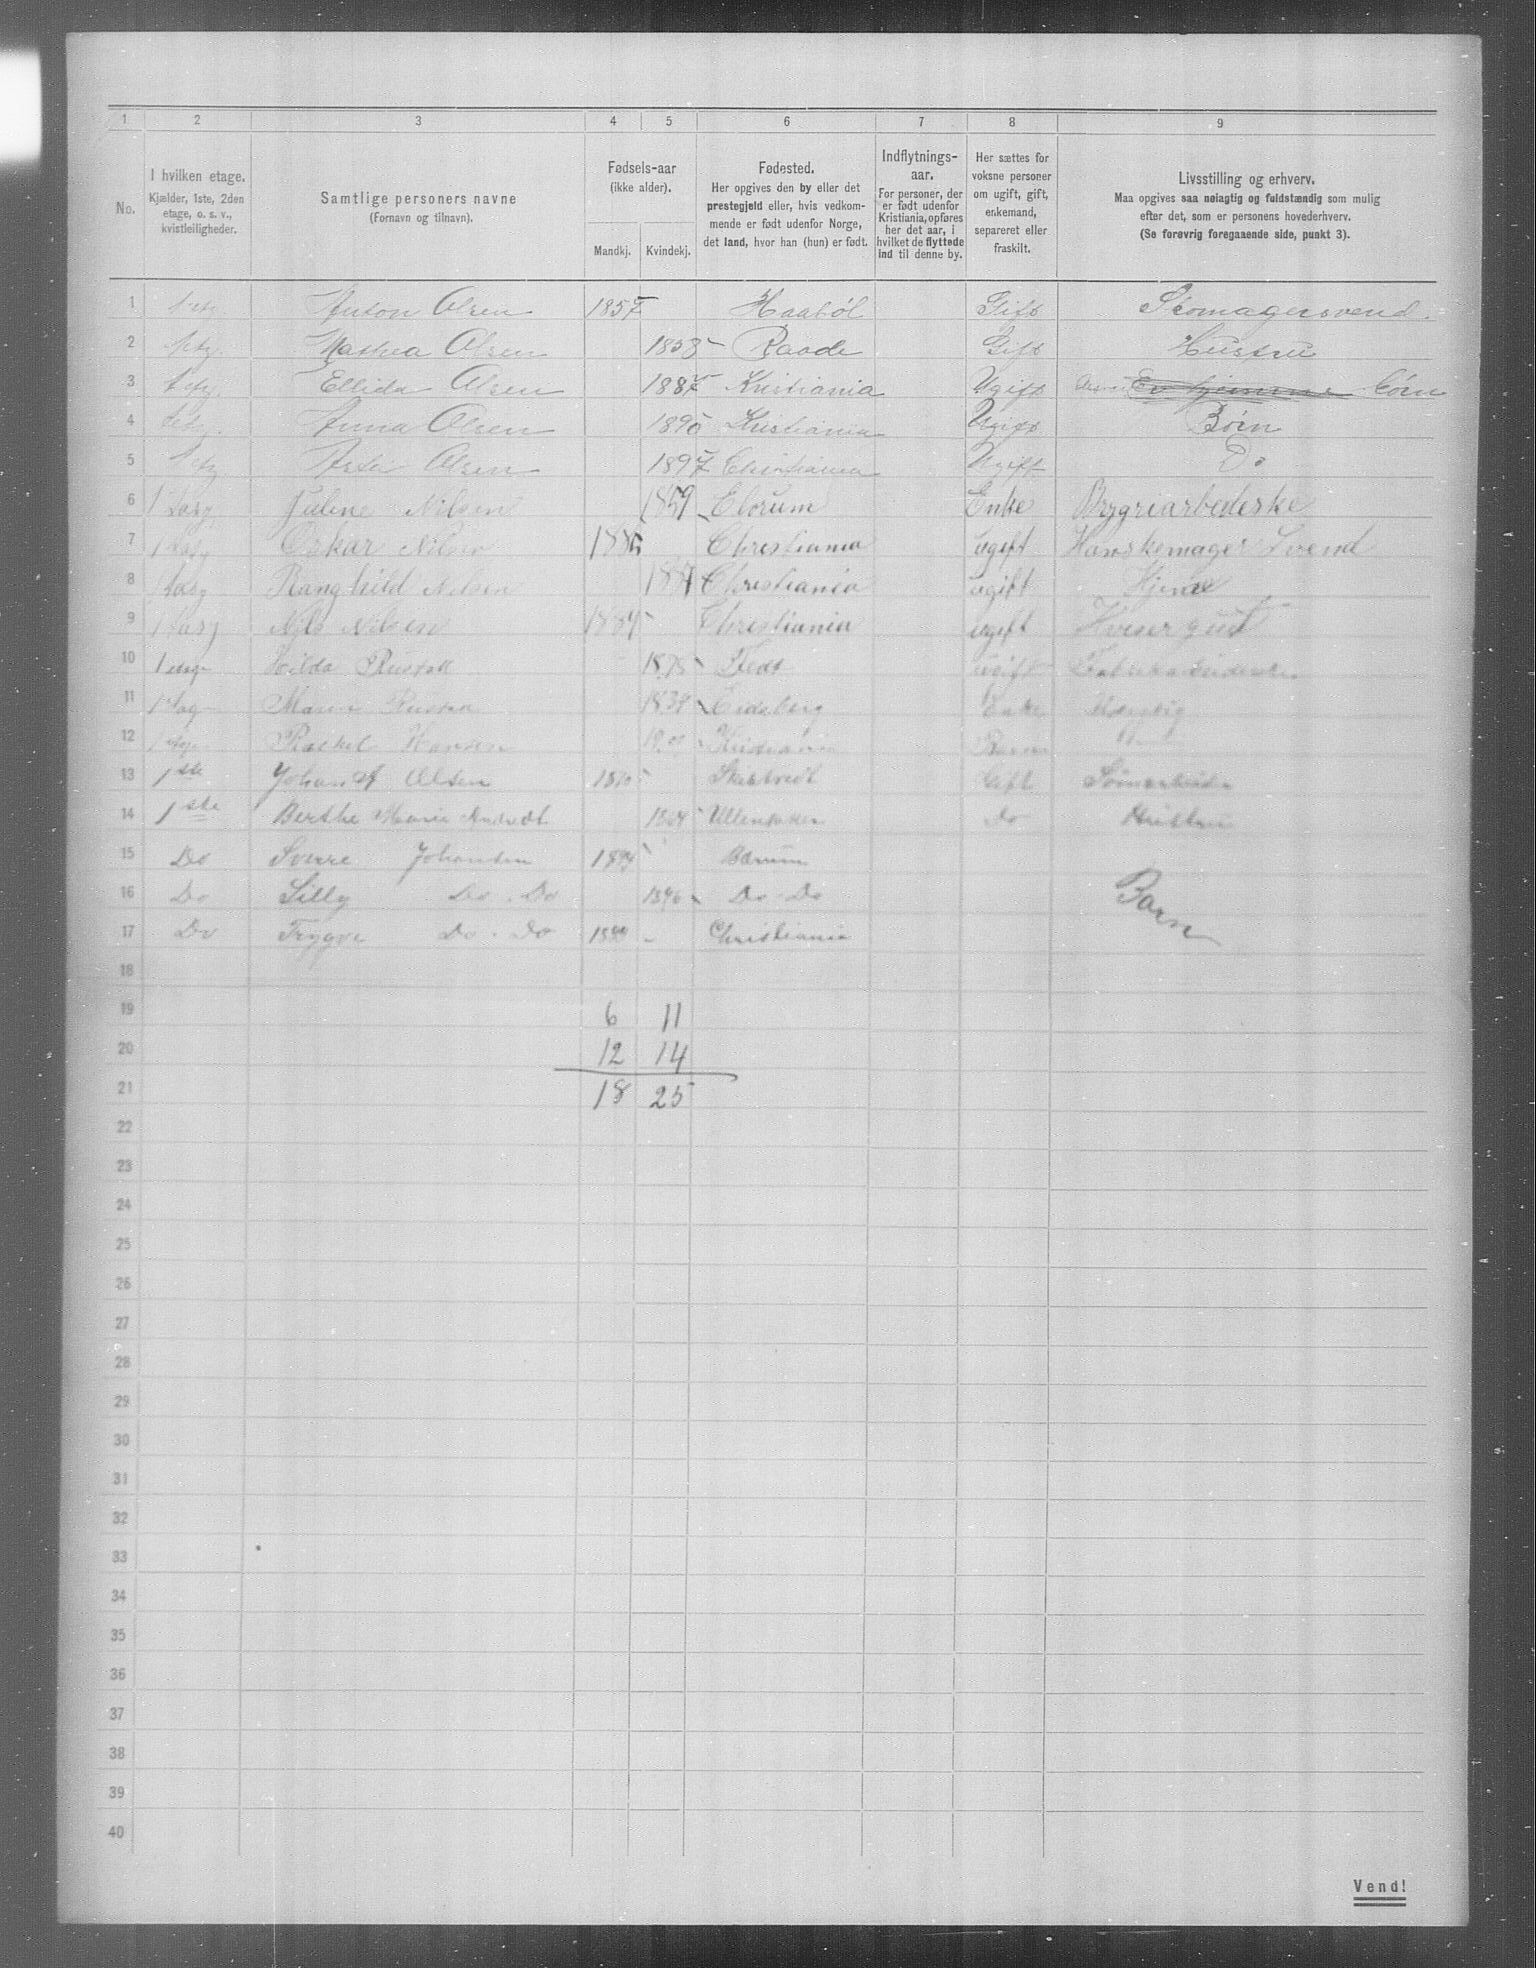 1 2 3 4 5 6 7 8 9
No.
I hvilken etage.
Kjælder, 1ste, 2den
etage, o. s. v.,
kvistleiligheder.
Samtlige personers navne
(Fornavn og tilnavn).
Fødsels-aar
(ikke alder).
Mandkj. Kvindekj.
Fødested.
Her opgives den by eller det
prestegjeld eller, hvis vedkom-
mende er født udenfor Norge,
det land, hvor han (hun) er født.
Indflytnings-
aar.
For personer, der
er født udenfor
Kristiania, opføres
her det aar, i
hvilket de flyttede
ind til denne by.
Her sættes for
voksne personer
om ugift, gift,
enkemand,
separeret eller
fraskilt.
Livsstilling og erhverv.
Maa opgives saa nøiagtig og fuldstændig som mulig
efter det, som er personens hovederhverv.
(Se forøvrig foregaaende side, punkt 3).
1 Anton Olsen 1857 Haabøl Gift Skomagersvend.
2 Mathea Olsen 1858 Raade Gift Hustru
3 Ellida Olsen 1887 Kristiania Ugift Børn
4 Anna Olsen 1890 Kristiania Ugift Børn
5 Olsen 1897 Christiania Ugift Do
6 Juline Nilsen 1859 Enke Brygriarbederske
7 Oskar Nilsen Christiania ugift Hanskemager Svend
8 Ranghild Nilsen Christiania ugift Hjeme
9 Nils Nilsen Christiania ugift Viser gut
10 1 Hilda Rustad 1875 ugift
11 1 Rustad 1834 Eidsberg Enke
12 1 Rakel Hansen Kristiania Barn
13 1ste Johan A Olsen 1870 Gift
14 1ste Berthe Marie 1869 Ullensaker Do Hustru
15 Do Sverre Johansen 1894 Bærum
16 Do Silly Do - Do 1896 Do - Do Børn
17 Do Trygve Do - Do 1899 Christiania
18
19 6 11
20 12 14
21 18 25
22
23
24
25
26
27
28
29
30
31
32
33
34
35
36
37
38
39
40
Vend!